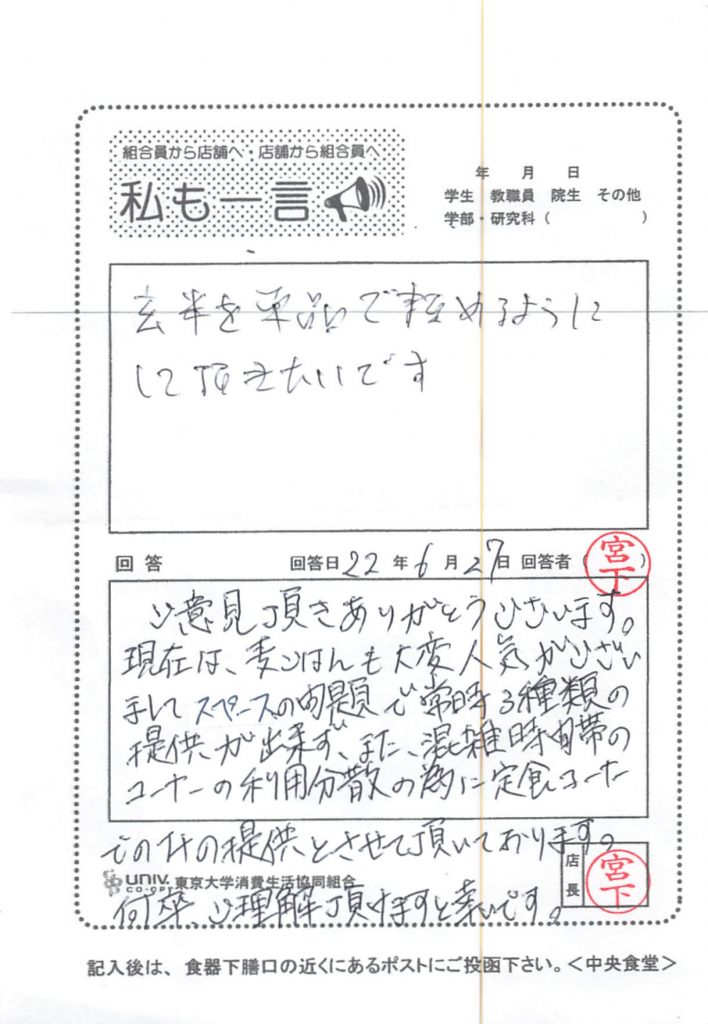 組合員から店舗へ・店舗から組合員へ
私も一言
年 月 日
学生 教職員 院生 その他
学部・研究科 ( )
玄米を単品で頼めるように
して頂きたいです
回答 回答日 22 年 6 月 27 日 回答者 (宮下)
ご意見頂きありがとうございます。
現在は、麦ごはんも大変人気がござい
まして スペースの問題で常時3種類の
提供が出来ず、また、混雑時間帯の
コーナーの利用分散の為に定食コーナー
でのみの提供とさせて頂いております。
店長 宮下
UNIV. CO-OP 東京大学消費生活協同組合
何卒、ご理解頂けますと幸いです。
記入後は、食器下膳口の近くにあるポストにご投函下さい。<中央食堂>